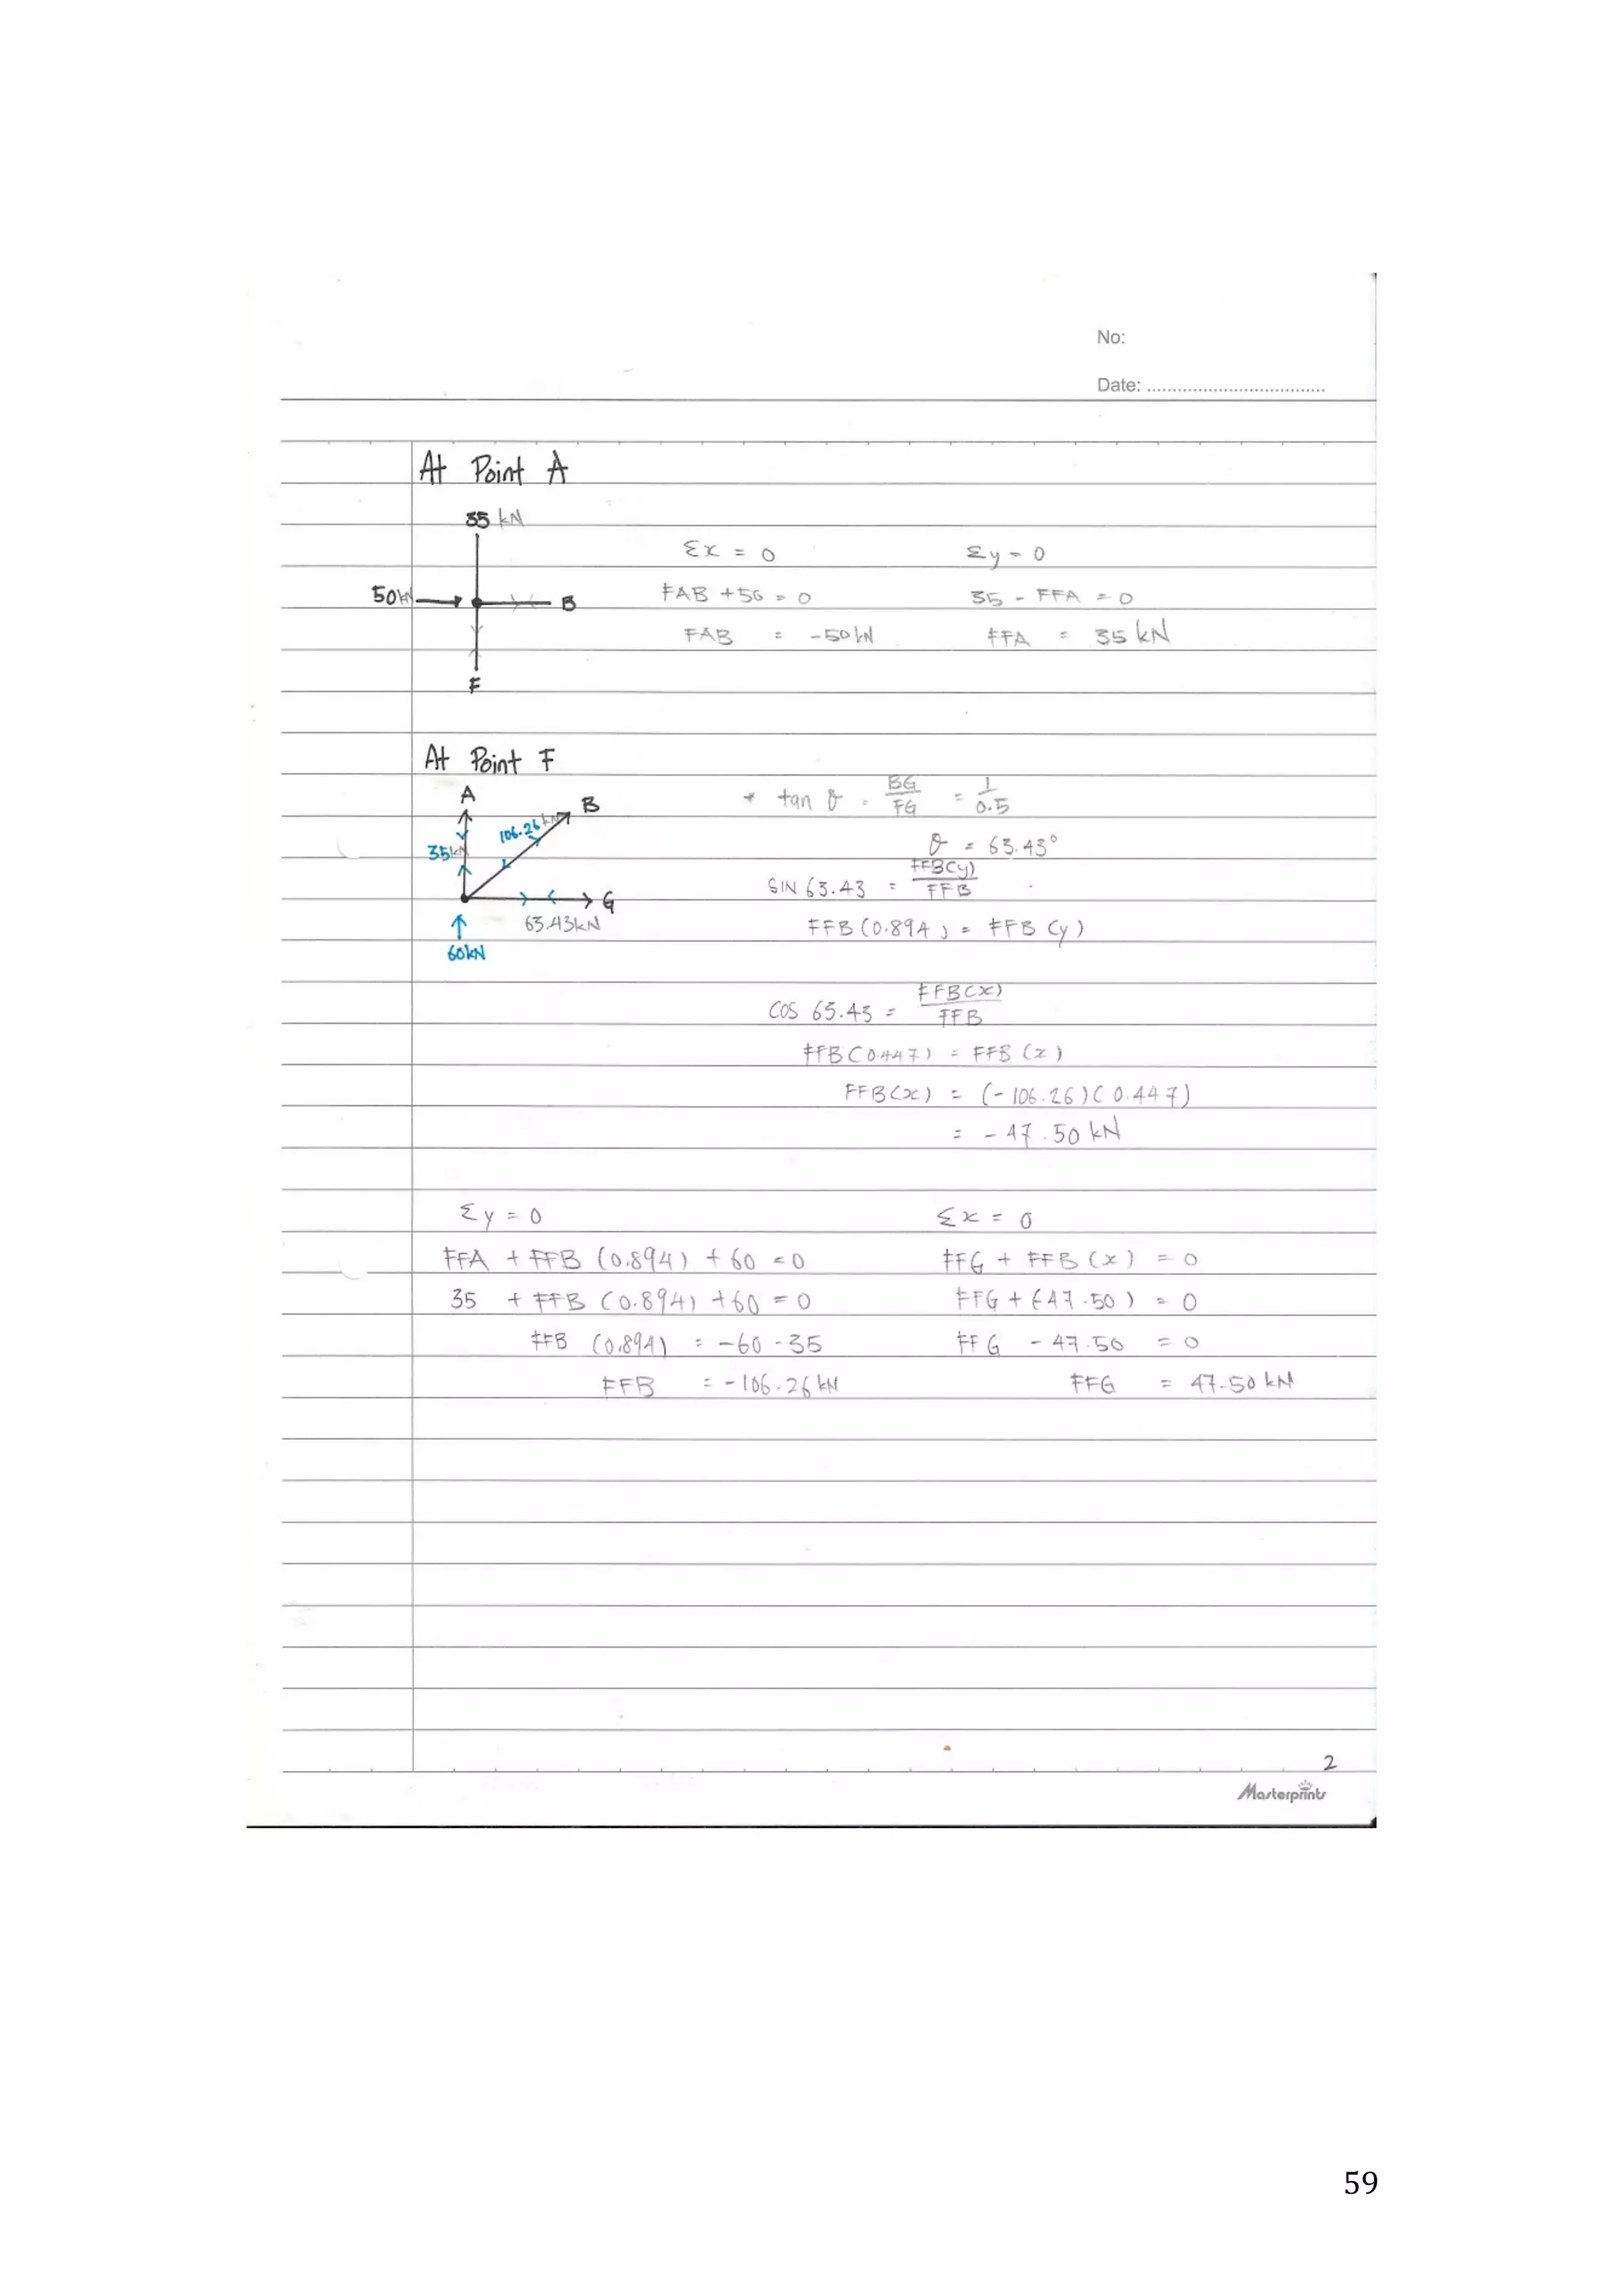 No:
Date: ..................................
At Point A
35 kN
Σx = 0
Σy = 0
50kN
B
FAB + 50 = 0
35 - FFA = 0
FAB = -50 kN
FFA = 35 kN
F
At Point F
A
B
* tan θ = BG/FG = 1/0.5
106.26 kN
35kN
θ = 63.43°
SIN 63.43 = FFB(y)/FFB
G
63.43kN
FFB (0.894) = FFB (y)
60kN
COS 63.43 = FFB(x)/FFB
FFB (0.447) = FFB (x)
FFB(x) = (-106.26)(0.447)
= -47.50 kN
Σy = 0
Σx = 0
FFA + FFB (0.894) + 60 = 0
FFG + FFB (x) = 0
35 + FFB (0.894) + 60 = 0
FFG + (-47.50) = 0
FFB (0.894) = -60 - 35
FFG - 47.50 = 0
FFB = -106.26 kN
FFG = 47.50 kN
2
Masterprints
59